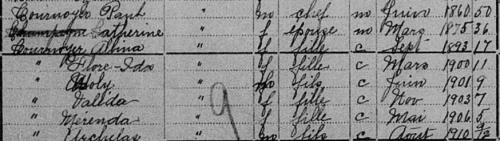 Cournoyer Paul " m chef m Juin 1860 50
Champagne Catherine " f épouse m Mars 1875 36
Cournoyer Alma " f fille c Sept 1893 17
" Flore-Ida " f fille c Mars 1900 11
" " fils c Juin 1901 9
" Vallida " f fille c Nov 1903 7
" Merenda " f fille c Mai 1906 5
" Archelas " m fils c Août 1910 9/12
9